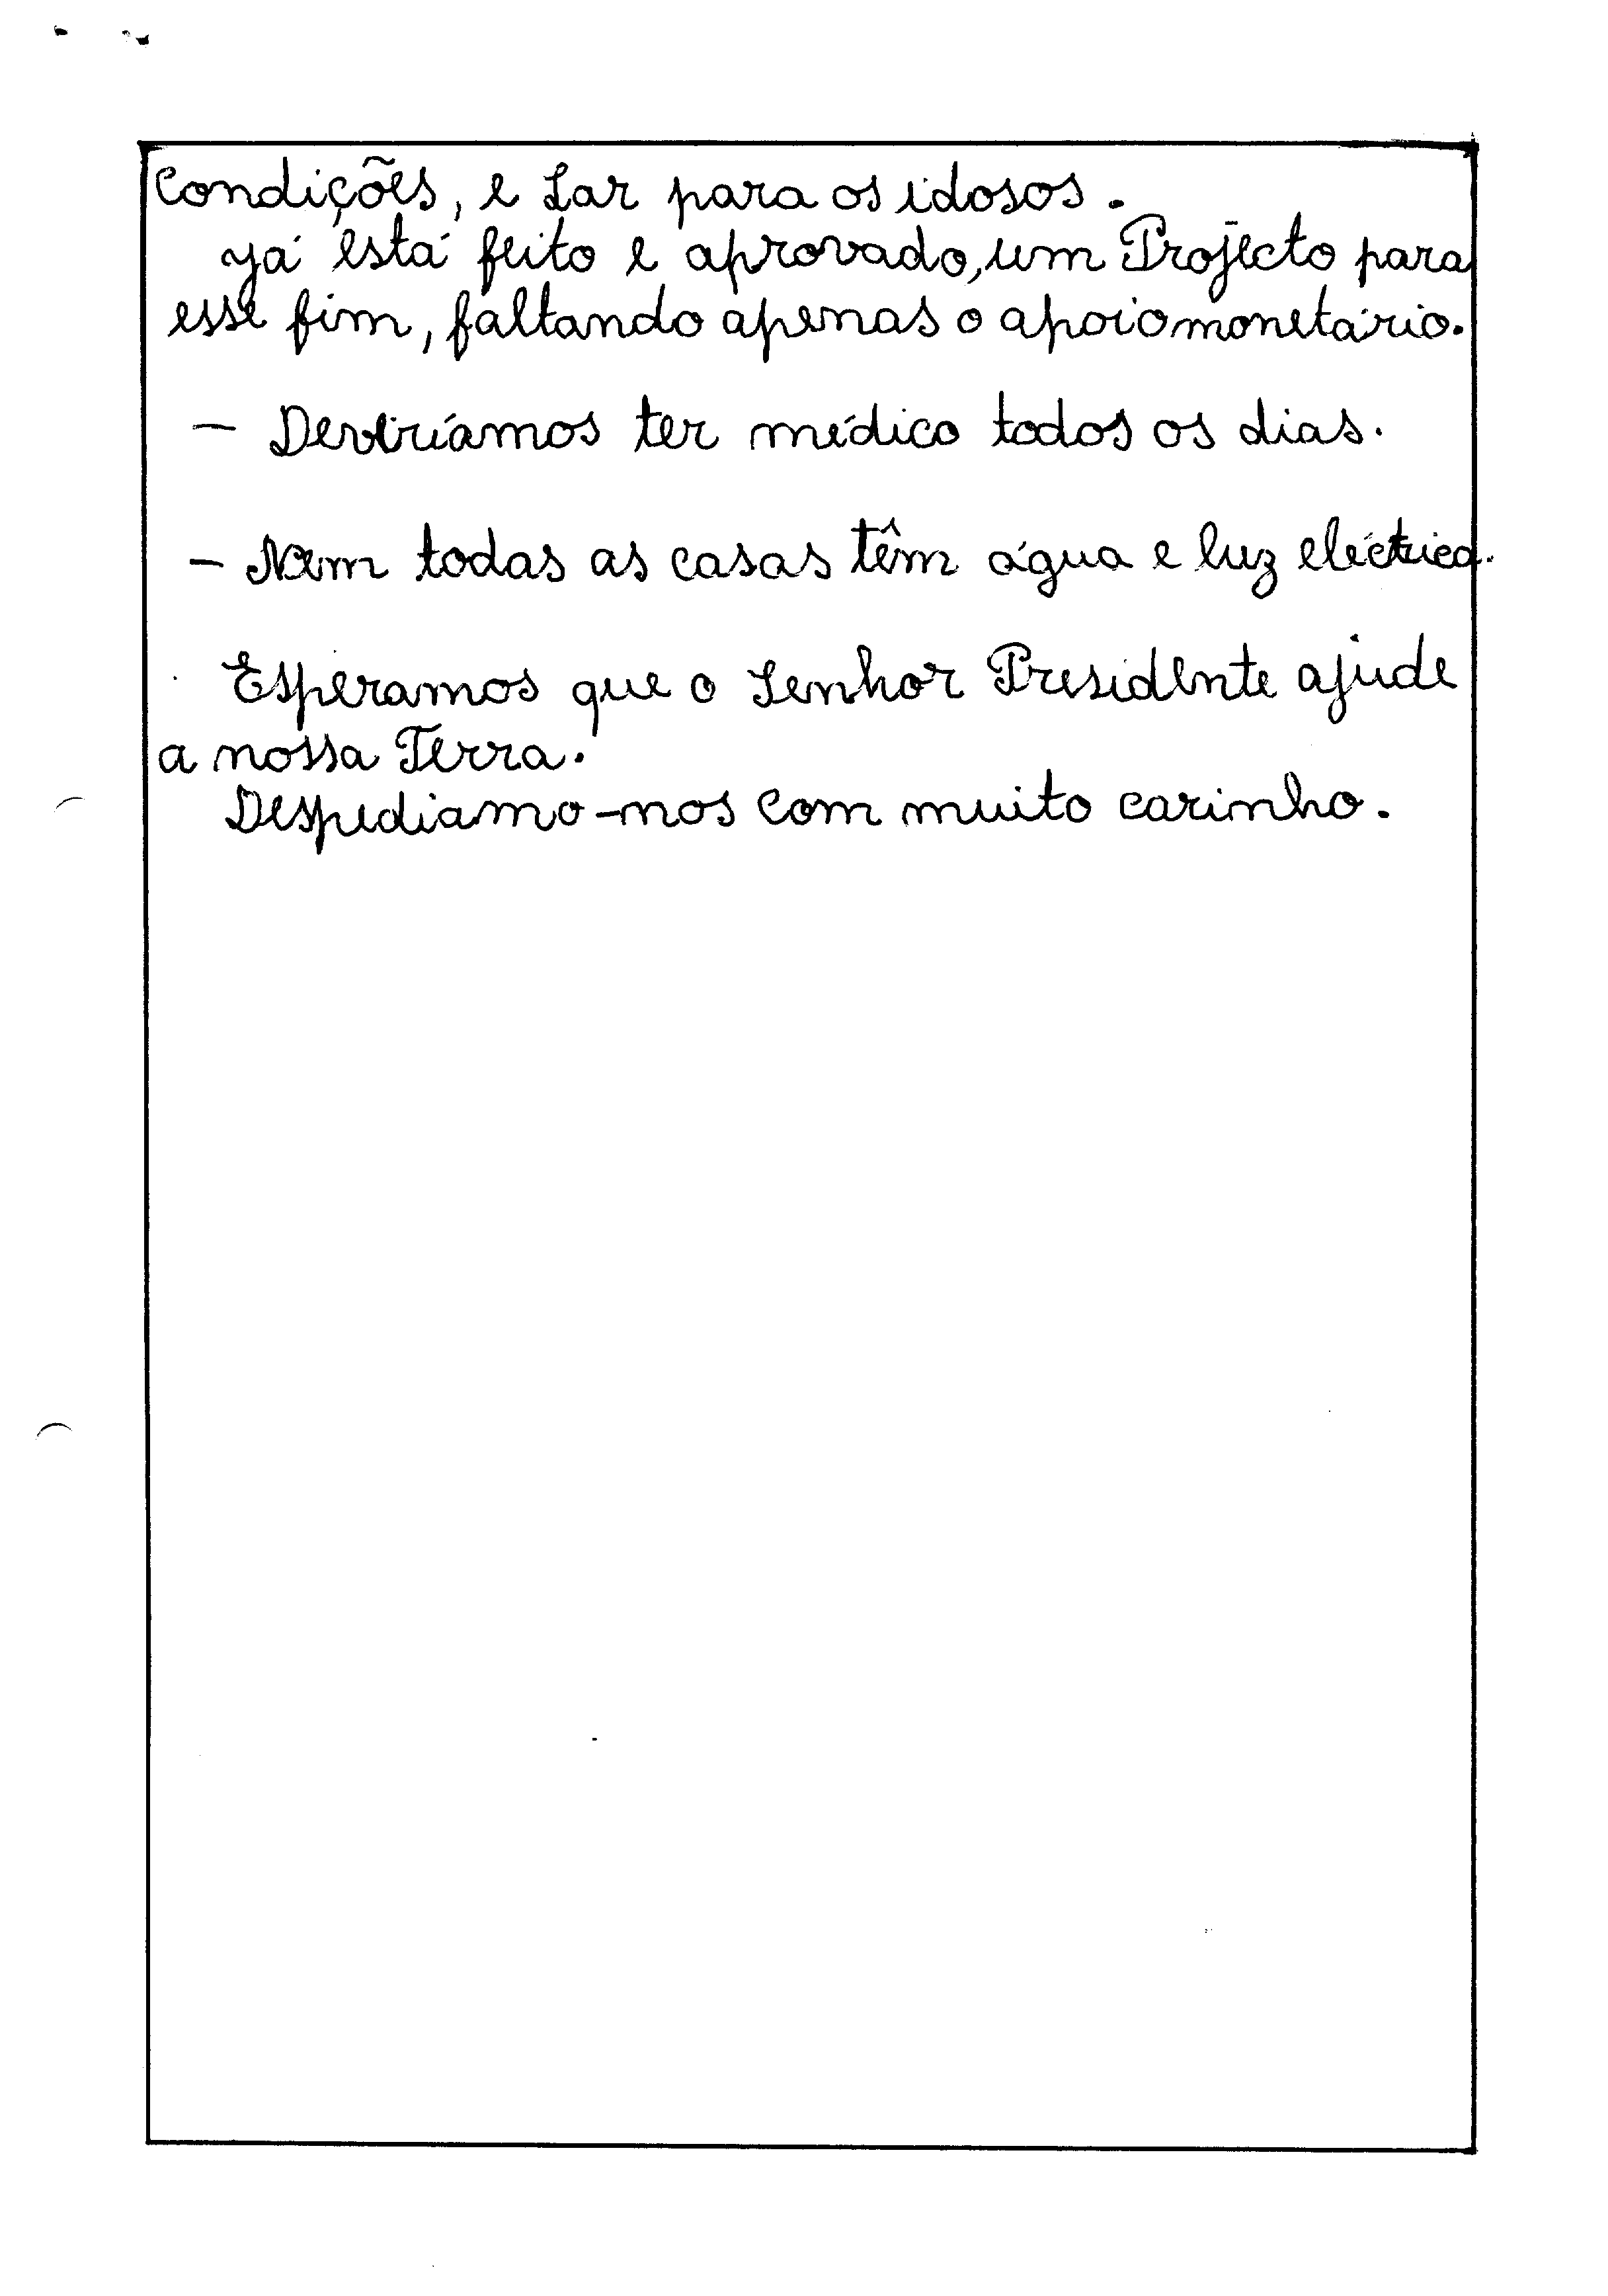 Condições, e Lar para os idosos.
Já está feito e aprovado, um Projecto para
esse fim, faltando apenas o apoio monetário.
– Deveríamos ter médico todos os dias.
– Nem todas as casas têm água e luz eléctrica.
Esperamos que o Senhor Presidente ajude
a nossa Terra.
Despediamo-nos com muito carinho.